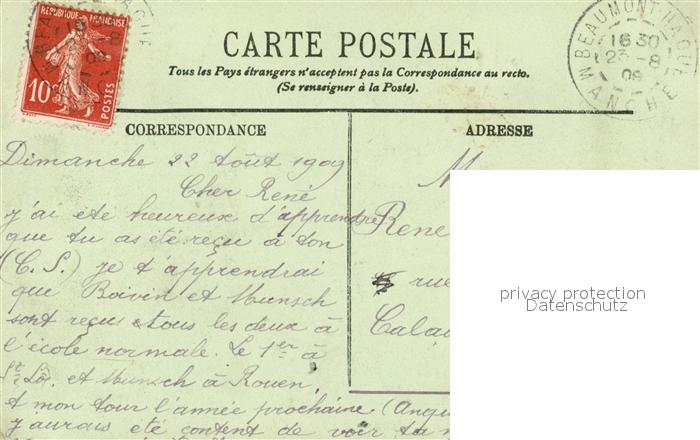 REPUBLIQUE FRANÇAISE
10c
POSTES
BEAUMONT-HAGUE
16 30
23 -8
09
MANCHE
CARTE POSTALE
Tous les Pays étrangers n'acceptent pas la Correspondance au recto.
(Se renseigner à la Poste).
CORRESPONDANCE
Dimanche 22 Août 1909
Cher René
j'ai été heureux d'apprendre
que tu as été reçu à ton
(C. S.) je t'apprendrai
que Boivin et Munsch
sont reçus tous les deux à
l'école normale. Le 1er à
St Lô, et Munsch à Rouen,
mon tour l'année prochaine
j'aurais été content de voir ta
ADRESSE
M
René
rue
Calva
privacy protection
Datenschutz